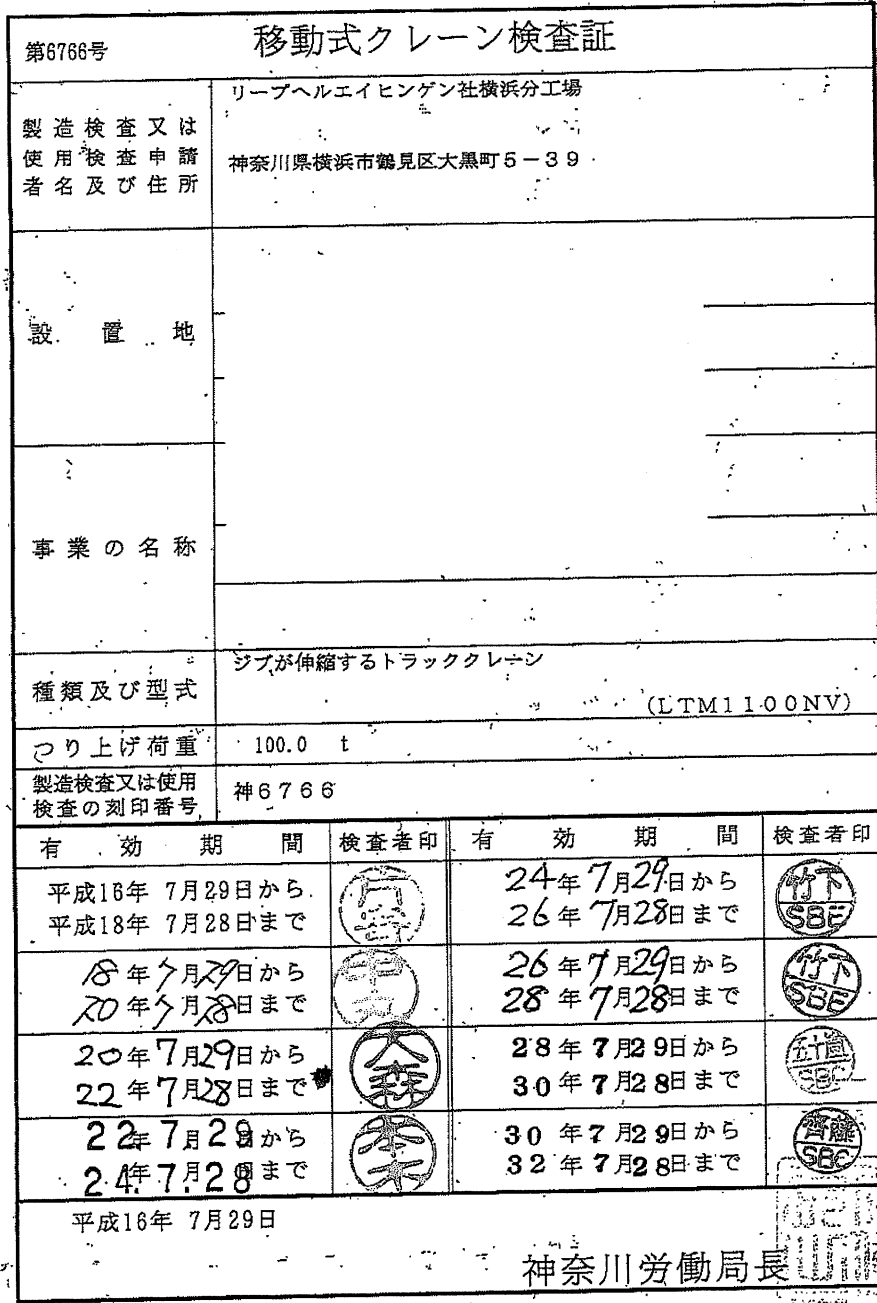 第6766号
移動式クレーン検査証
製造検査又は
使用検査申請
者名及び住所
リープヘルエイヒンゲン社横浜分工場
神奈川県横浜市鶴見区大黒町5-39
設置地
事業の名称
種類及び型式
ジブが伸縮するトラッククレーン
(LTM1100NV)
つり上げ荷重
100.0 t
製造検査又は使用
検査の刻印番号
神6766
有効期間
検査者印
有効期間
検査者印
平成16年 7月29日から
平成18年 7月28日まで
18年7月29日から
20年7月28日まで
中丸
20年7月29日から
22年7月28日まで
大森
22年7月29日から
24年7月28日まで
24年7月29日から
26年7月28日まで
竹下
SBE
26年7月29日から
28年7月28日まで
竹下
SBE
28年7月29日から
30年7月28日まで
SBC
30年7月29日から
32年7月28日まで
齊藤
SBC
平成16年 7月29日
神奈川労働局長